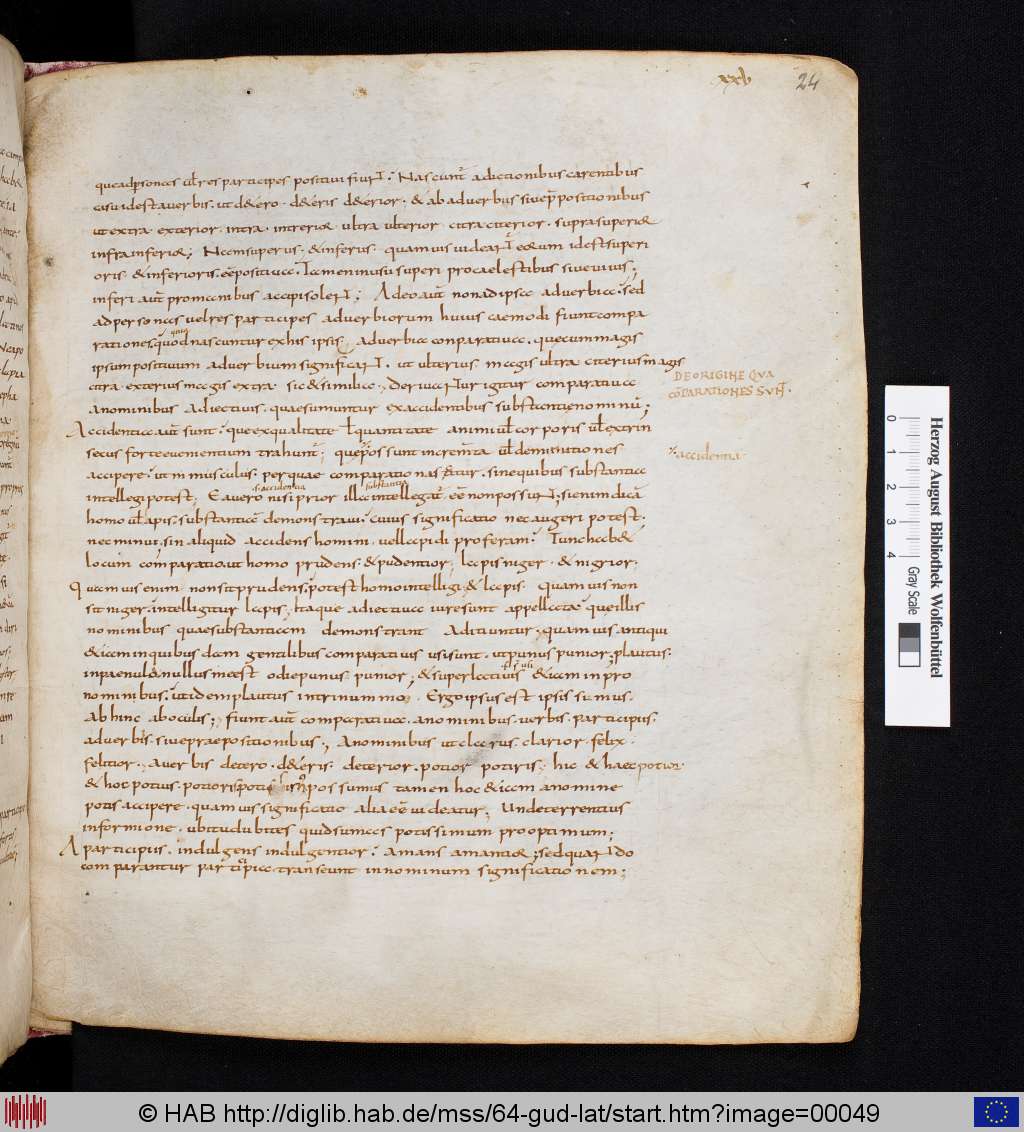 xxv 24
que ad personas ul res participes positiui fiunt. Nascunt adiectionibus carentibus
casu id est a uerbis. ut d&ero. d&eris d&erior. & ab aduerbiis siue ppositionibus
ut extra. exterior. intra. interior. ultra ulterior. citra citerior. supra superior
infra inferior; Nam superus. & inferus. quamuis uideant eorum id est superi
oris. & inferioris. ee positiua. Tamen in usu superi pro caelestibus siue uiuis;
inferi aut pro manibus accipi solent; Adeo aut non ad ipsa aduerbia. sed
ad personas uel res participes aduerbiorum huiuscaemodi fiunt compa
rationes. quod nascuntur ex his ipsis aduerbia comparatiua. que cum magis
ipsum positiuum aduerbium significant. ut ulterius magis ultra citerius magis
citra. exterius magis extra sic & similia. Deriuantur igitur comparatiua
a nominibus adiectiuis. quae sumuntur ex accidentibus substantie nominu;
DE ORIGINE QVA
COPARATIONES SVNT.
Accidentia aut sunt. que ex qualitate ul quantitate animi ul corporis ul extrin
secus forte euenientium trahunt; que possunt incremta ul deminutiones
accidentia
accipere. ut minusculus. per quae comparatio nascatur. sine quibus substantia
intellegi potest; Ea uero nisi prior illa intellegat ee non possunt; si enim dica
s. accidentia substantia
homo ul lapis. substantia demonstraui. cuius significatio nec augeri potest.
nec minui. sin aliquid accidens homini. uel lapidi proferam. Tunc hab&
locum comparatio. ut homo prudens. & prudentior. lapis niger. & nigrior.
Quamuis enim non sit prudens. potest homo intelligi. & lapis quamuis non
sit niger. intelligitur lapis. Itaque adiectiua iure sunt appellata que illis
nominibus quae substantiam demonstrant Adiciuntur. quamuis antiqui
&iam in quibusdam gentilibus comparatiuis usi sunt. ut punus punior; plautus.
in paenulo. nullus me est odie punus punior; & superlatiuis &iam in pro
nominibus. ut idem plautus in trinummo. Ergo ipsus est ipsissimus.
Ab hinc ab oculis; fiunt aut comparatiua. a nominibus. uerbis. participiis.
aduerbiis. siue praepositionibus; A nominibus ut clarus. clarior. felix.
felitior. A uerbis detero. d&eris deterior. potior potiris. hic & haec potior
& hoc potius. potioris. possumus tamen hoc &iam a nomine
potis accipere. quamuis significatio alia ee uideatur; Unde terrentius
in formione. ubi tu dubites quid sumas potissimum pro optimum;
A participiis. indulgens indulgentior. amans amantior; sed quando
comparantur participia transeunt in nominum significationem;
Herzog August Bibliothek Wolfenbüttel
0 1 2 3 4 Gray Scale
© HAB http://diglib.hab.de/mss/64-gud-lat/start.htm?image=00049